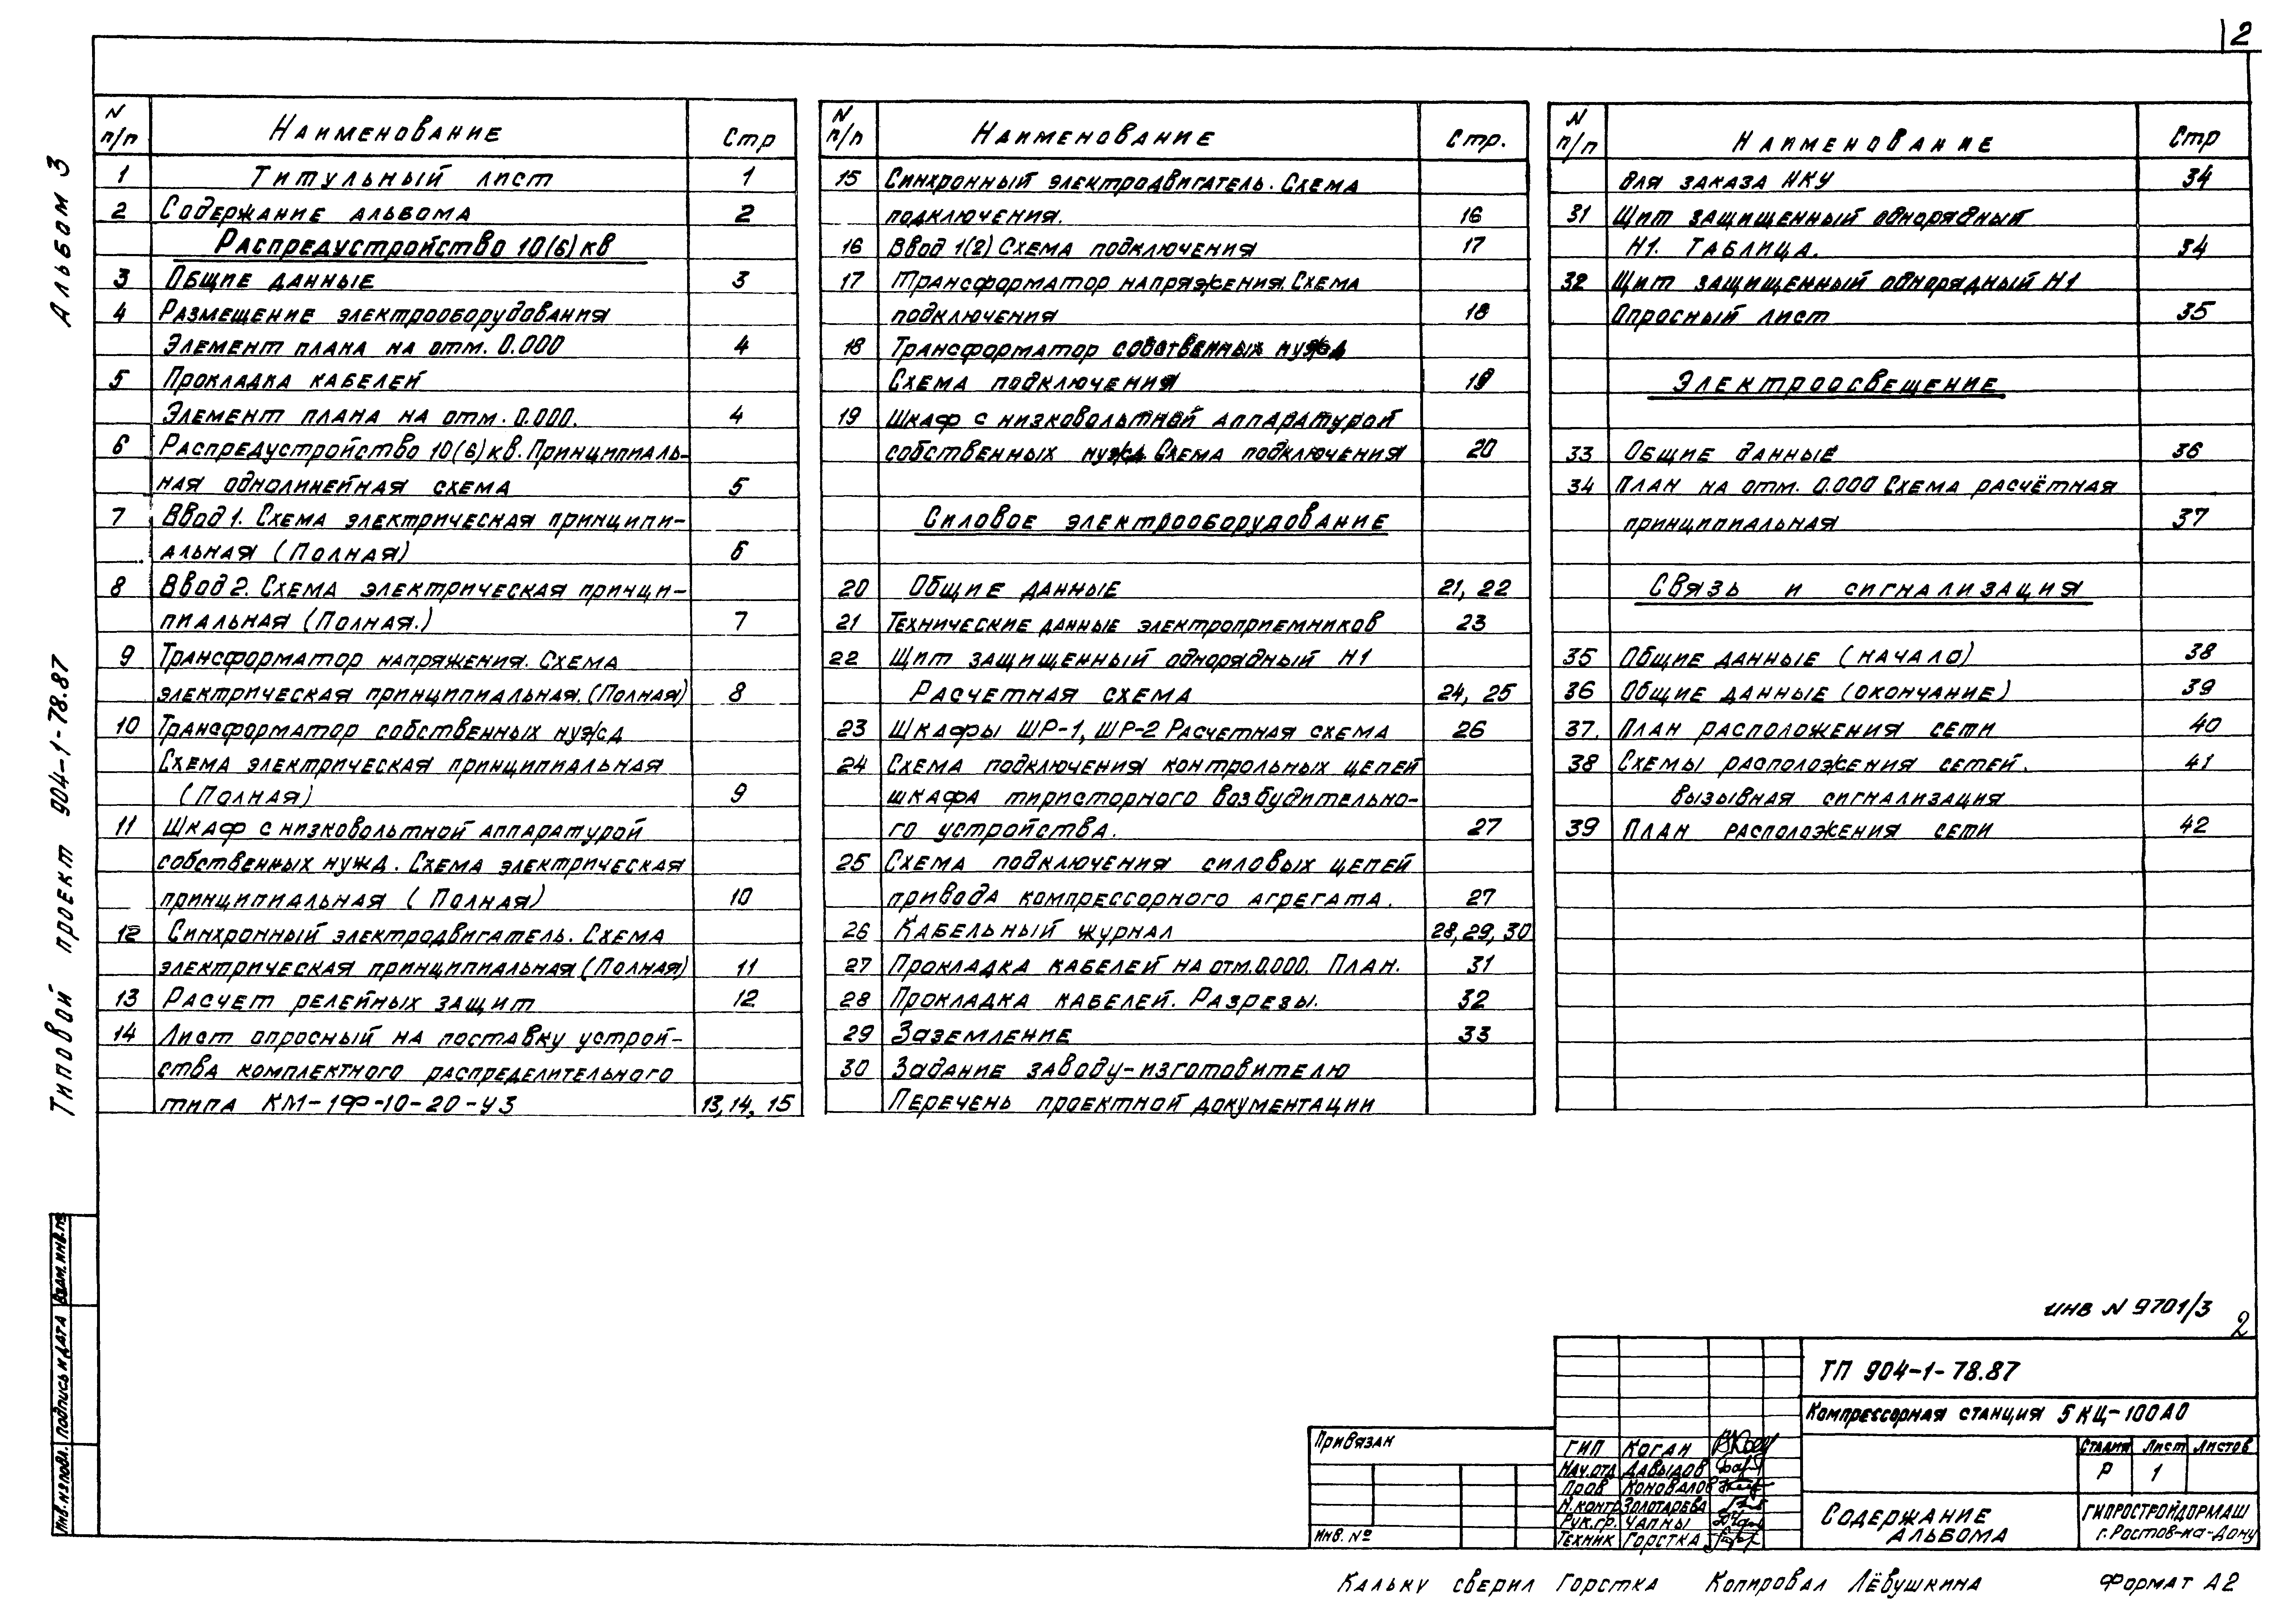 2
Альбом 3
Типовой проект 904-1-78.87
N п/п Наименование Стр
1 Титульный лист 1
2 Содержание альбома 2
Распредустройство 10(6) кв
3 Общие данные 3
4 Размещение электрооборудования
Элемент плана на отм. 0.000 4
5 Прокладка кабелей
Элемент плана на отм. 0.000. 4
6 Распредустройство 10(6) кв. Принципиаль-
ная однолинейная схема 5
7 Ввод 1. Схема электрическая принципи-
альная (Полная) 6
8 Ввод 2. Схема электрическая принци-
пиальная (Полная.) 7
9 Трансформатор напряжения. Схема
электрическая принципиальная. (Полная) 8
10 Трансформатор собственных нужд
Схема электрическая принципиальная
(Полная) 9
11 Шкаф с низковольтной аппаратурой
собственных нужд. Схема электрическая
принципиальная (Полная) 10
12 Синхронный электродвигатель. Схема
электрическая принципиальная (Полная) 11
13 Расчет релейных защит 12
14 Лист опросный на поставку устрой-
ства комплектного распределительного
типа КМ-1Ф-10-20-У3 13, 14, 15
N п/п Наименование Стр.
15 Синхронный электродвигатель. Схема
подключения. 16
16 Ввод 1(2) Схема подключения 17
17 Трансформатор напряжения. Схема
подключения 18
18 Трансформатор собственных нужд
Схема подключения 19
19 Шкаф с низковольтной аппаратурой
собственных нужд Схема подключения 20
Силовое электрооборудование
20 Общие данные 21, 22
21 Технические данные электроприемников 23
22 Щит защищенный однорядный Н1
Расчетная схема 24, 25
23 Шкафы ШР-1, ШР-2 Расчетная схема 26
24 Схема подключения контрольных цепей
шкафа тиристорного возбудительно-
го устройства. 27
25 Схема подключения силовых цепей
привода компрессорного агрегата. 27
26 Кабельный журнал 28, 29, 30
27 Прокладка кабелей на отм. 0.000. План. 31
28 Прокладка кабелей. Разрезы. 32
29 Заземление 33
30 Задание заводу-изготовителю
Перечень проектной документации
N п/п Наименование Стр
для заказа НКУ 34
31 Щит защищенный однорядный
Н1. Таблица. 34
32 Щит защищенный однорядный Н1
Опросный лист 35
Электроосвещение
33 Общие данные 36
34 План на отм. 0.000 Схема расчётная
принципиальная 37
Связь и сигнализация
35 Общие данные (начало) 38
36 Общие данные (окончание) 39
37. План расположения сети 40
38 Схемы расположения сетей. 41
вызывная сигнализация
39 План расположения сети 42
Взам. инв. №
Подпись и дата
Инв. № подл.
инв N 9701/3
2
ТП 904-1-78.87
Компрессорная станция 5КЦ-100А0
Привязан
Инв. №
ГИП Коган
Нач.отд Давыдов
Пров Коновалов
Н.контр Золотарева
Рук.гр. Чапны
Техник Горстка
Стадия Лист Листов
Р 1
Содержание
альбома
ГИПРОСТРОЙДОРМАШ
г. Ростов-на-Дону
Кальку сверил Горстка Копировал Лёвушкина Формат А2